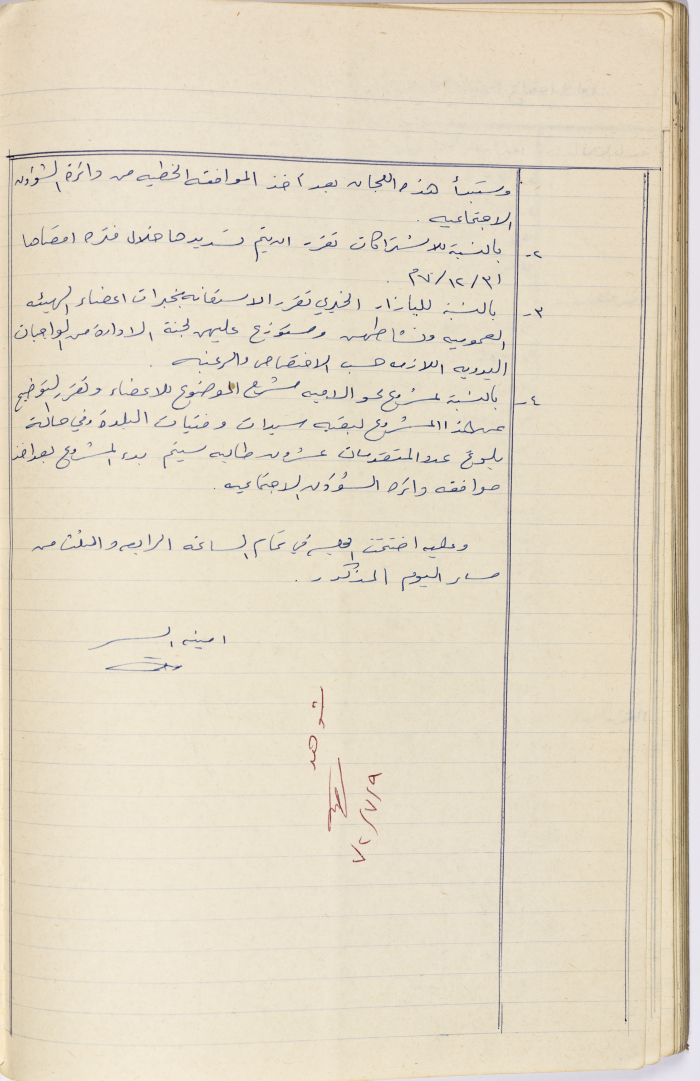 وستبدأ هذه اللجان بعد أخذ الموافقه الخطيه من دائرة الشؤون
الاجتماعيه .
٢- بالنسبة للاشتراكات تقرر ان يتم تسديدها خلال فتره اقصاها
٣١/١٢/٧٠م .
٣- بالنسبة للبازار الخيري تقرر الاستعانه بخبرات اعضاء الهيئه
العموميه ونشاطهن وستوزع عليهن لجنة الادارة من الواجبات
اليدويه اللازمه حسب الاختصاص والرغبه .
٤- بالنسبة لمشروع محو الاميه شرح الموضوع للاعضاء وتقرر التوضيح
عن هذا المشروع لبقيه سيدات وفتيات البلدة وفي حالة
بلوغ عدد المتقدمات عشرون طالبه سيتم بدء المشروع بعد اخذ
موافقه دائرة الشؤون الاجتماعيه .
وعليه اختتمت الجلسه في تمام الساعه الرابعه والثلث من
مساء اليوم المذكور .
امينه السر
شوهد
٧٢/٧/٩